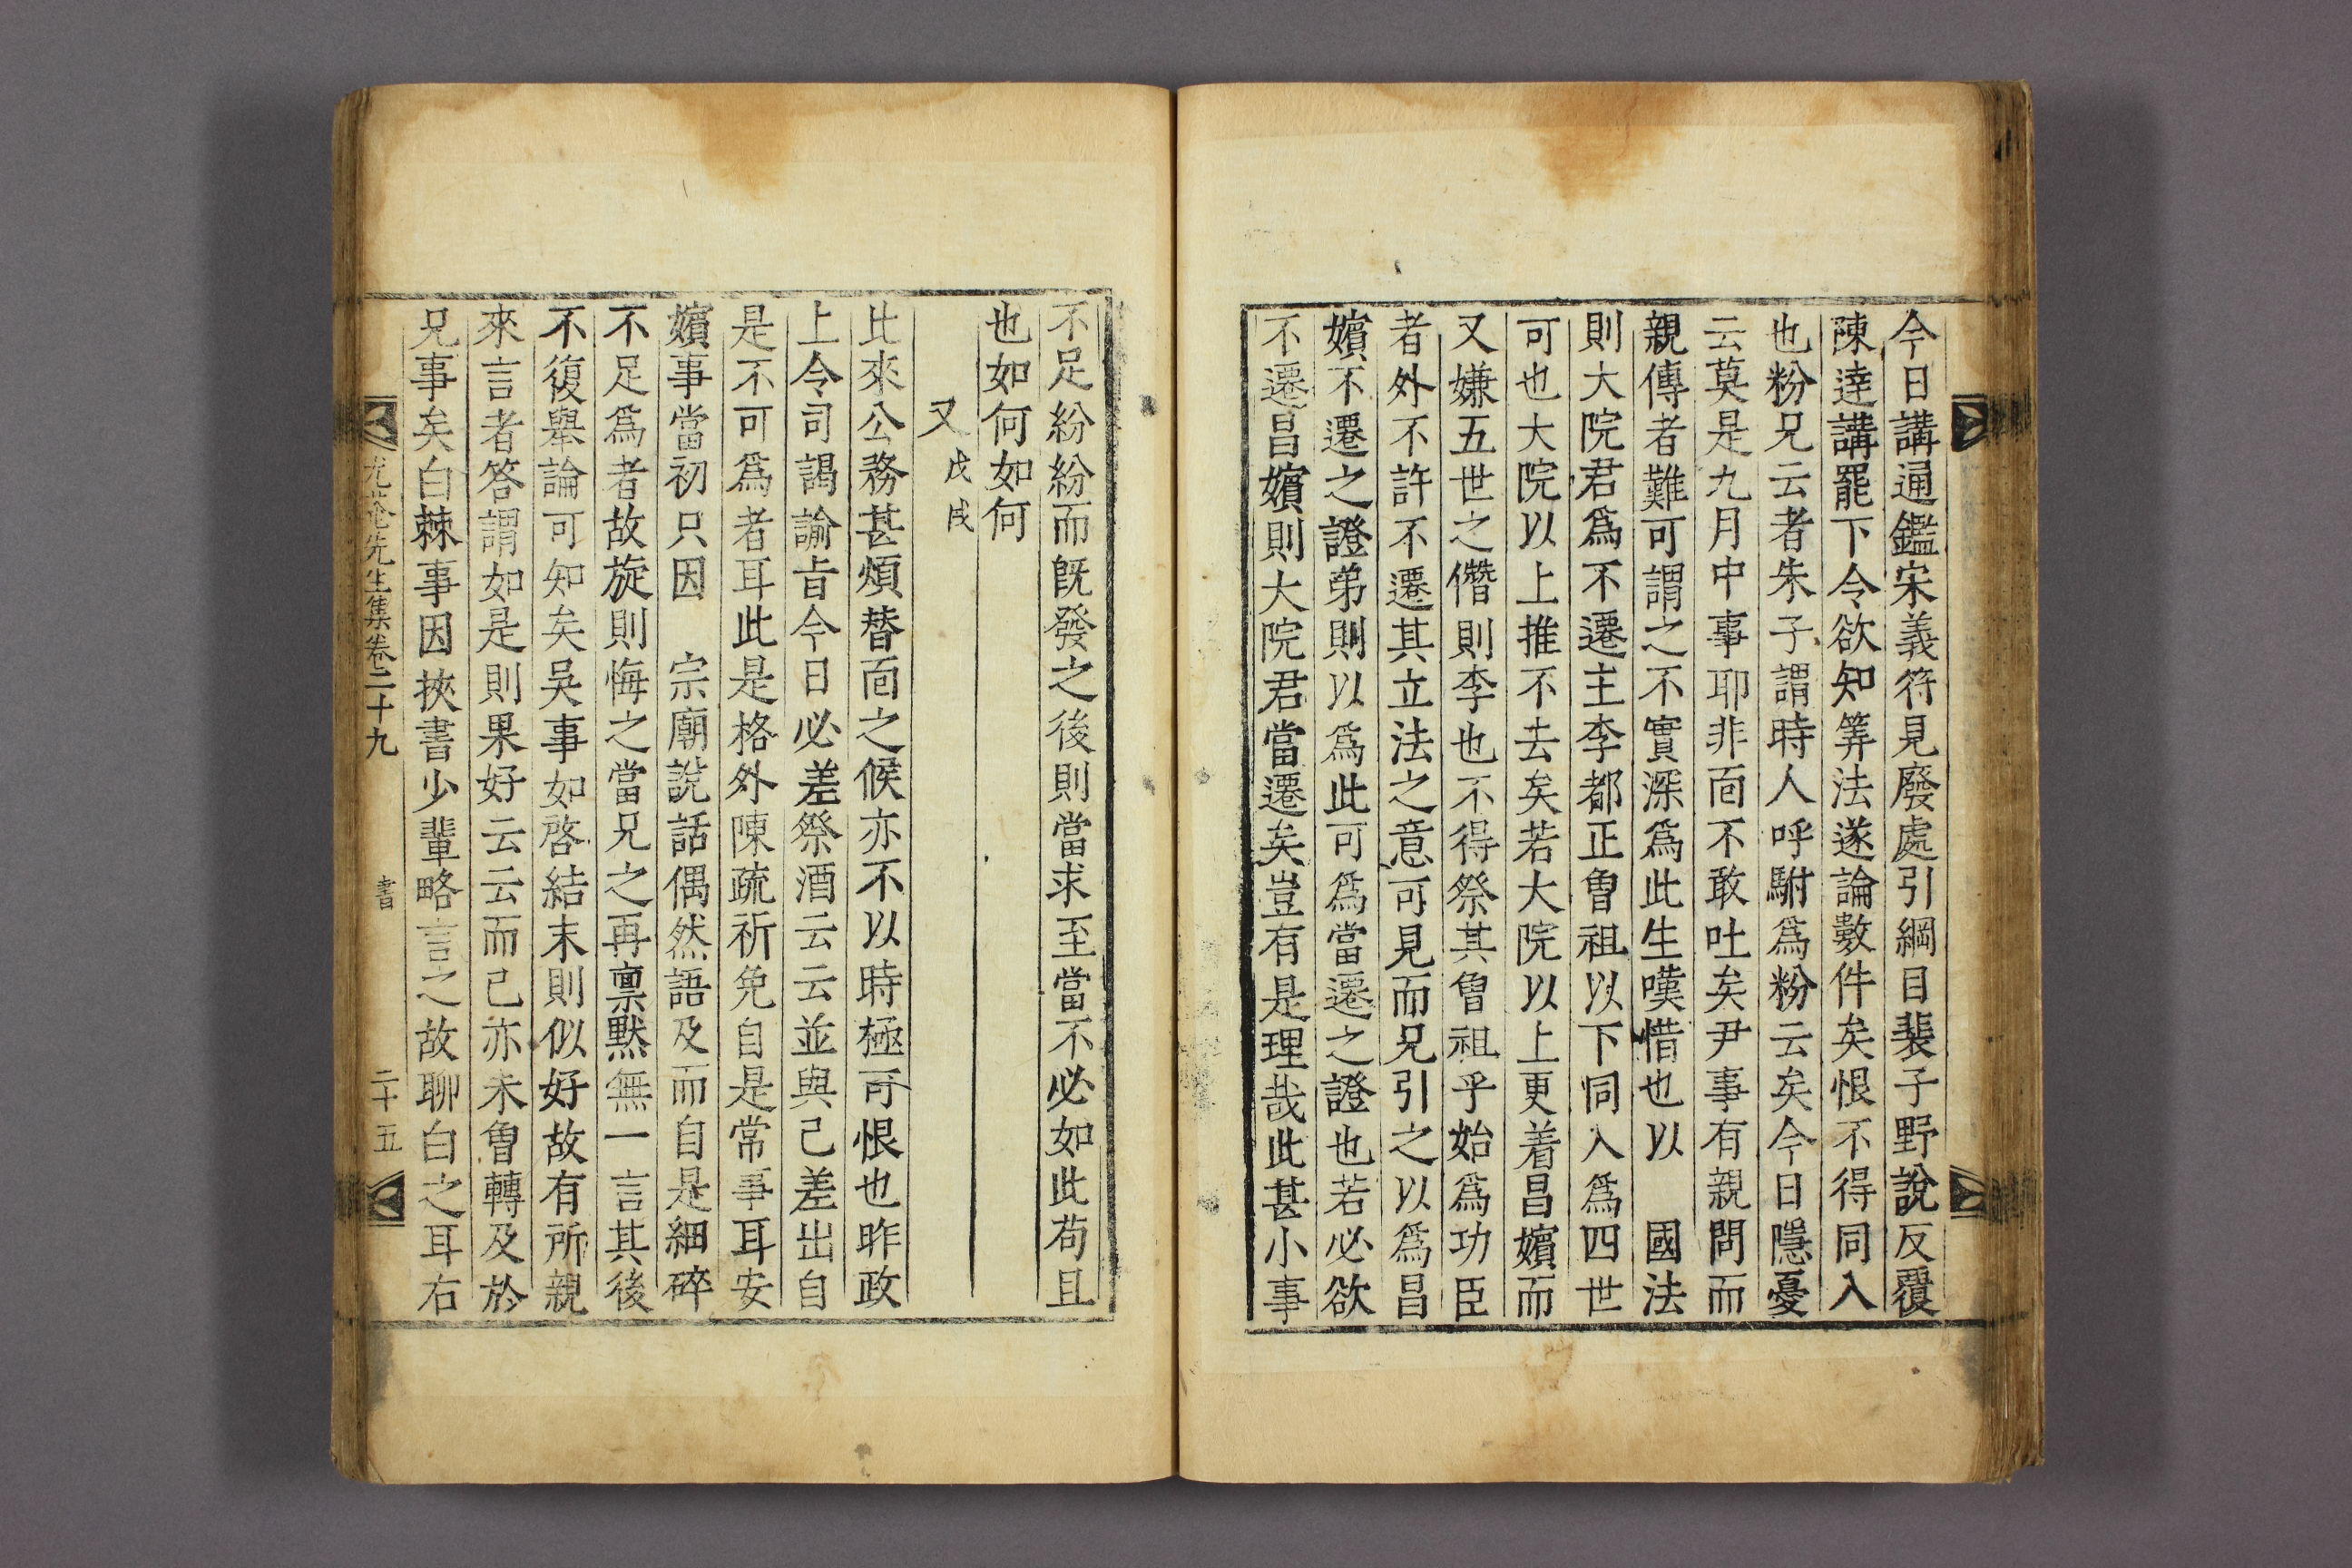 今日講通鑑宋義符見廢處引綱目裴子野說反覆
陳達講罷下令欲知筭法遂論數件矣恨不得同入
也粉兄云者朱子謂時人呼駙爲粉云矣今日隱憂
云莫是九月中事耶非面不敢吐矣尹事有親問而
親傳者難可謂之不實深爲此生嘆惜也以　國法
則大院君爲不遷主李都正曾祖以下同入爲四世
可也大院以上推不去矣若大院以上更着昌嬪而
又嫌五世之僭則李也不得祭其曾祖乎始爲功臣
者外不許不遷其立法之意可見而兄引之以爲昌
嬪不遷之證弟則以爲此可爲當遷之證也若必欲
不遷昌嬪則大院君當遷矣豈有是理哉此甚小事
不足紛紛而旣發之後則當求至當不必如此苟且
也如何如何
又戊戌
比來公務甚煩替面之候亦不以時極可恨也昨政
上令司謁諭旨今日必差祭酒云云並與己差出自
是不可爲者耳此是格外陳疏祈免自是常事耳安
嬪事當初只因　宗廟說話偶然語及而自是細碎
不足爲者故旋則悔之當兄之再稟黙無一言其後
不復擧論可知矣吳事如啓結末則似好故有所親
來言者答謂如是則果好云云而己亦未曾轉及於
兄事矣白棘事因挾書少輩略言之故聊白之耳右
尤菴先生集卷二十九　書　二十五